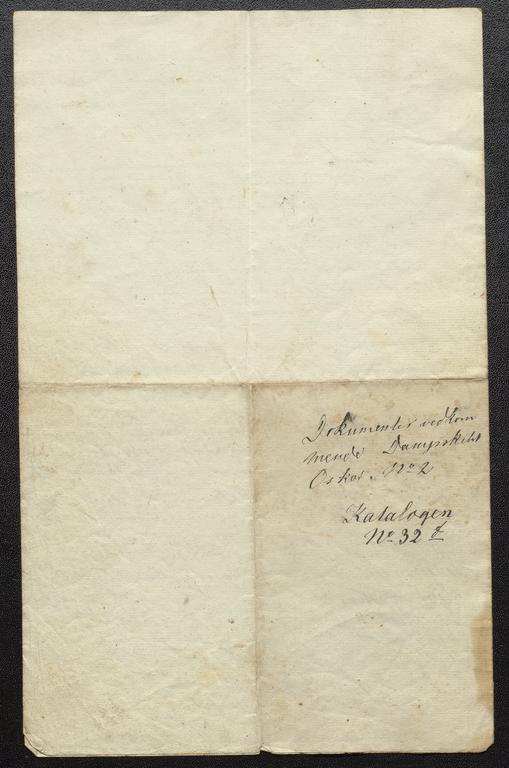 Dokumenter vedkom
mende Dampskibt
Oskar. No 2
Katalogen
No 32 f